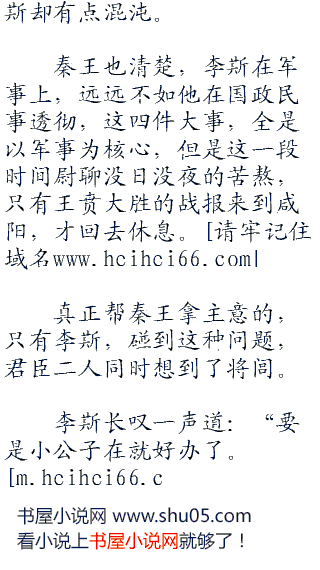 斯却有点混沌。
秦王也清楚，李斯在军
事上，远远不如他在国政民
事透彻，这四件大事，全是
以军事为核心，但是这一段
时间尉聊没日没夜的苦熬，
只有王贲大胜的战报来到咸
阳，才回去休息。[请牢记住
域名www.hcihci66.com|
真正帮秦王拿主意的，
只有李斯，碰到这种问题，
君臣二人同时想到了将闾。
李斯长叹一声道：“要
是小公子在就好办了。
[m.hcihci66.c
书屋小说网 www.shu05.com
看小说上书屋小说网就够了！